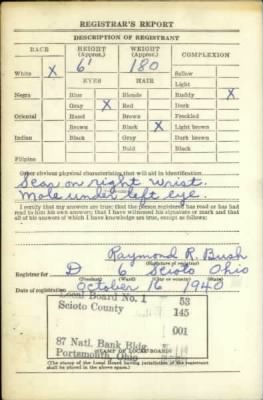 REGISTRAR'S REPORT
DESCRIPTION OF REGISTRANT
RACE HEIGHT (Approx.) WEIGHT (Approx.) COMPLEXION
White X 6' 180 Sallow
EYES HAIR Light
Negro Blue Blonde Ruddy X
Gray X Red Dark
Oriental Hazel Brown Freckled
Brown Black X Light brown
Indian Black Gray Dark brown
Bald Black
Filipino
Other obvious physical characteristics that will aid in identification
Scar on right wrist.
Mole under left eye.
I certify that my answers are true; that the person registered has read or has had
read to him his own answers; that I have witnessed his signature or mark and that
all of his answers of which I have knowledge are true, except as follows:
Raymond R. Bush
(Signature of registrar)
Registrar for D 6 Scioto Ohio
(Precinct) (Ward) (City or county) (State)
Date of registration October 16 1940
Local Board No. 1 53
Scioto County 145
001
87 Natl. Bank Bldg.
Portsmouth, Ohio
(STAMP OF LOCAL BOARD)
(The stamp of the Local Board having jurisdiction of the registrant
shall be placed in the above space.)